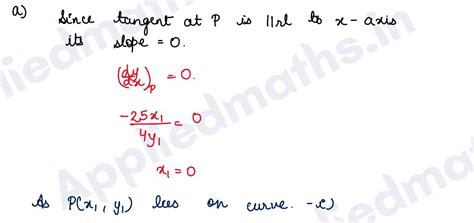 a) Since tangent at P is ||rl to x-axis
its slope = 0.
(dy/dx)p = 0.
-25x₁/4y₁ = 0
x₁ = 0
As P(x₁, y₁) lies on curve. -(i)
Appliedmaths.in